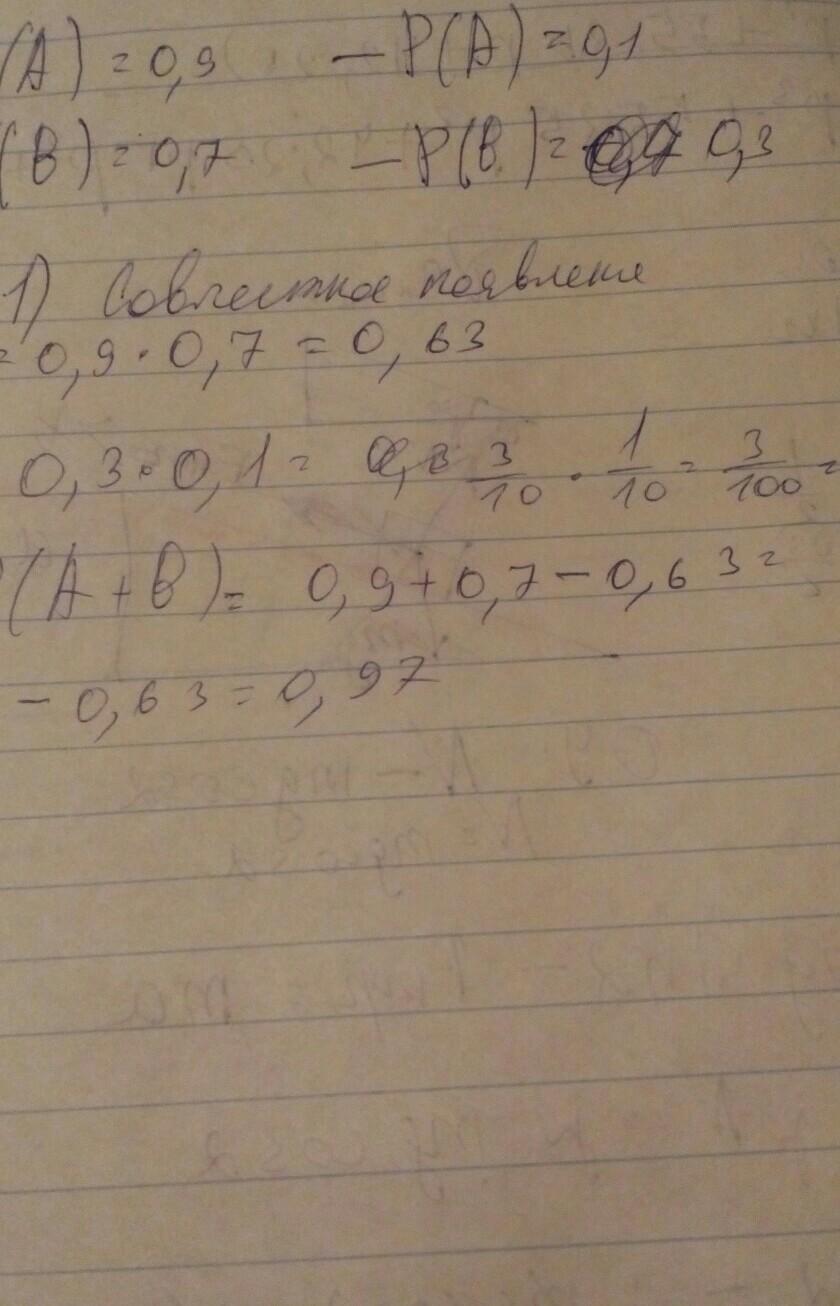 (A) = 0,9 — P(A) = 0,1
(B) = 0,7 — P(B) = 0,3
1) Совместное появление
= 0,9 · 0,7 = 0,63
0,3 · 0,1 = 3/10 · 1/10 = 3/100 =
(A + B) = 0,9 + 0,7 - 0,63 =
- 0,63 = 0,97